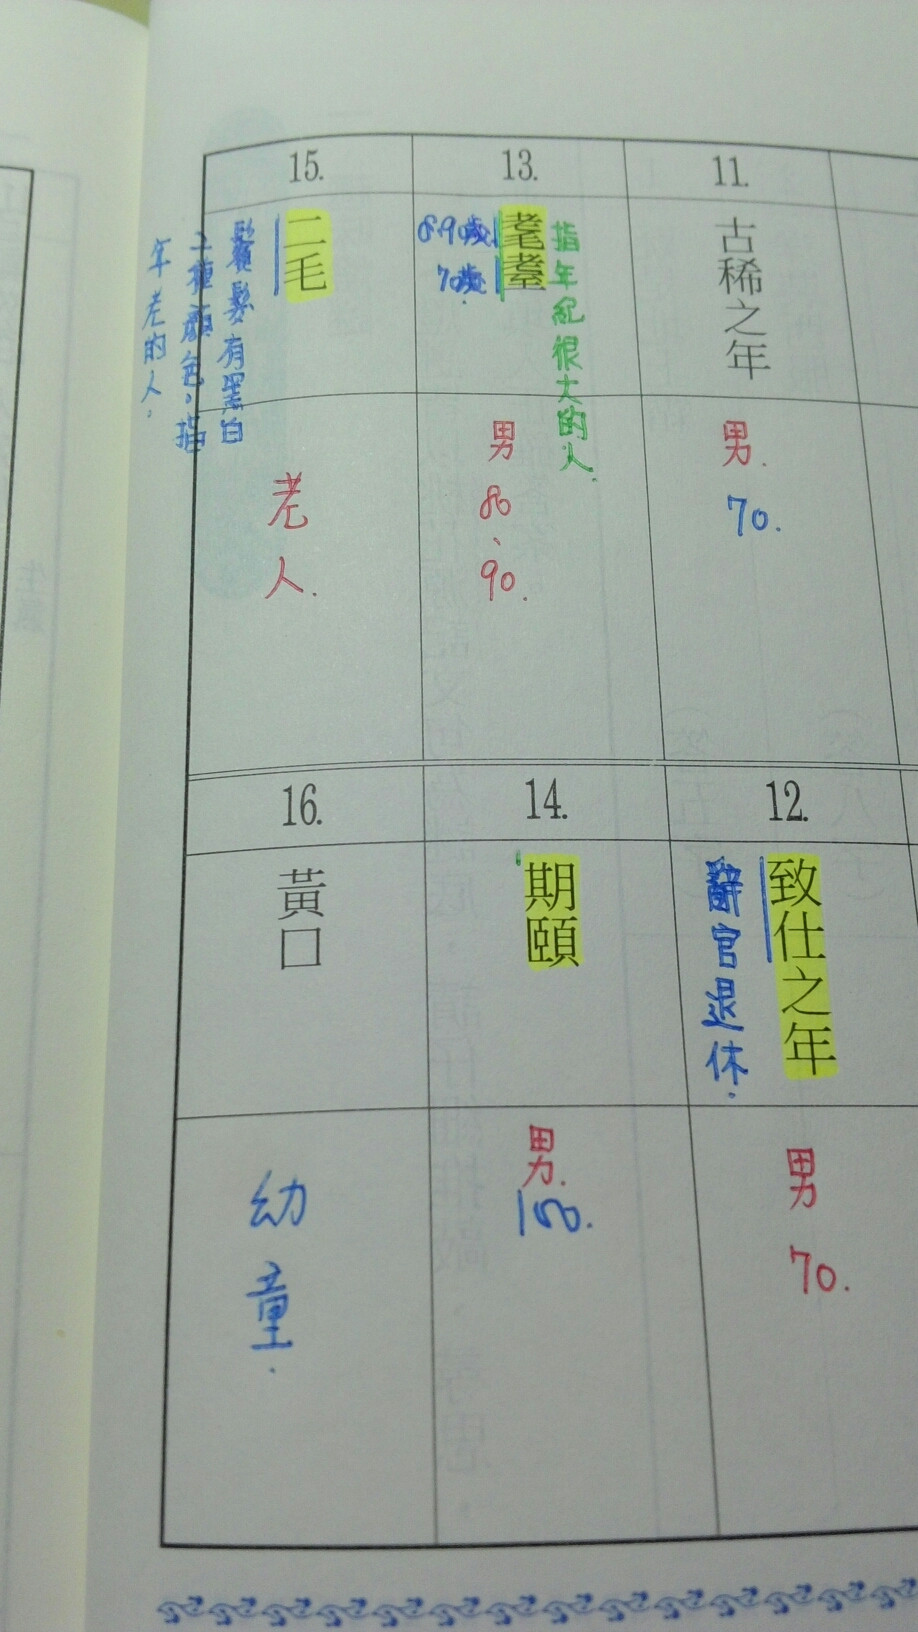 11.
古稀之年
男.
70.
12.
致仕之年
辭官退休.
男
70.
13.
指年紀很大的人.
耄耋
8.90歲
70歲.
男
80、90.
14.
期頤
男.
100.
15.
二毛
鬢髮有黑白
二種顏色,指
年老的人.
老人.
16.
黃口
幼童.